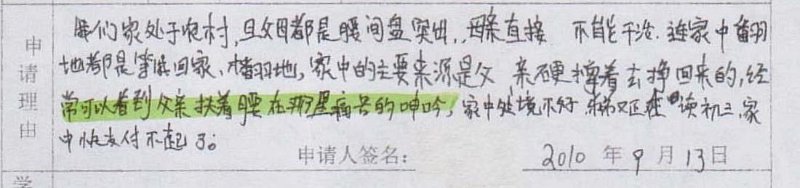 申请理由
我们家处于农村,且父母都是腰间盘突出,母亲直接 不能干活.连家中翻
地都是等我回家、才翻地,家中的主要来源是父 亲硬撑着去挣回来的,经
常可以看到父亲扶着腰在那里痛苦的呻吟,家中处境不好 弟弟又正在读初三,家
中快支付不起了。
申请人签名: 2010 年 9 月 13 日
学